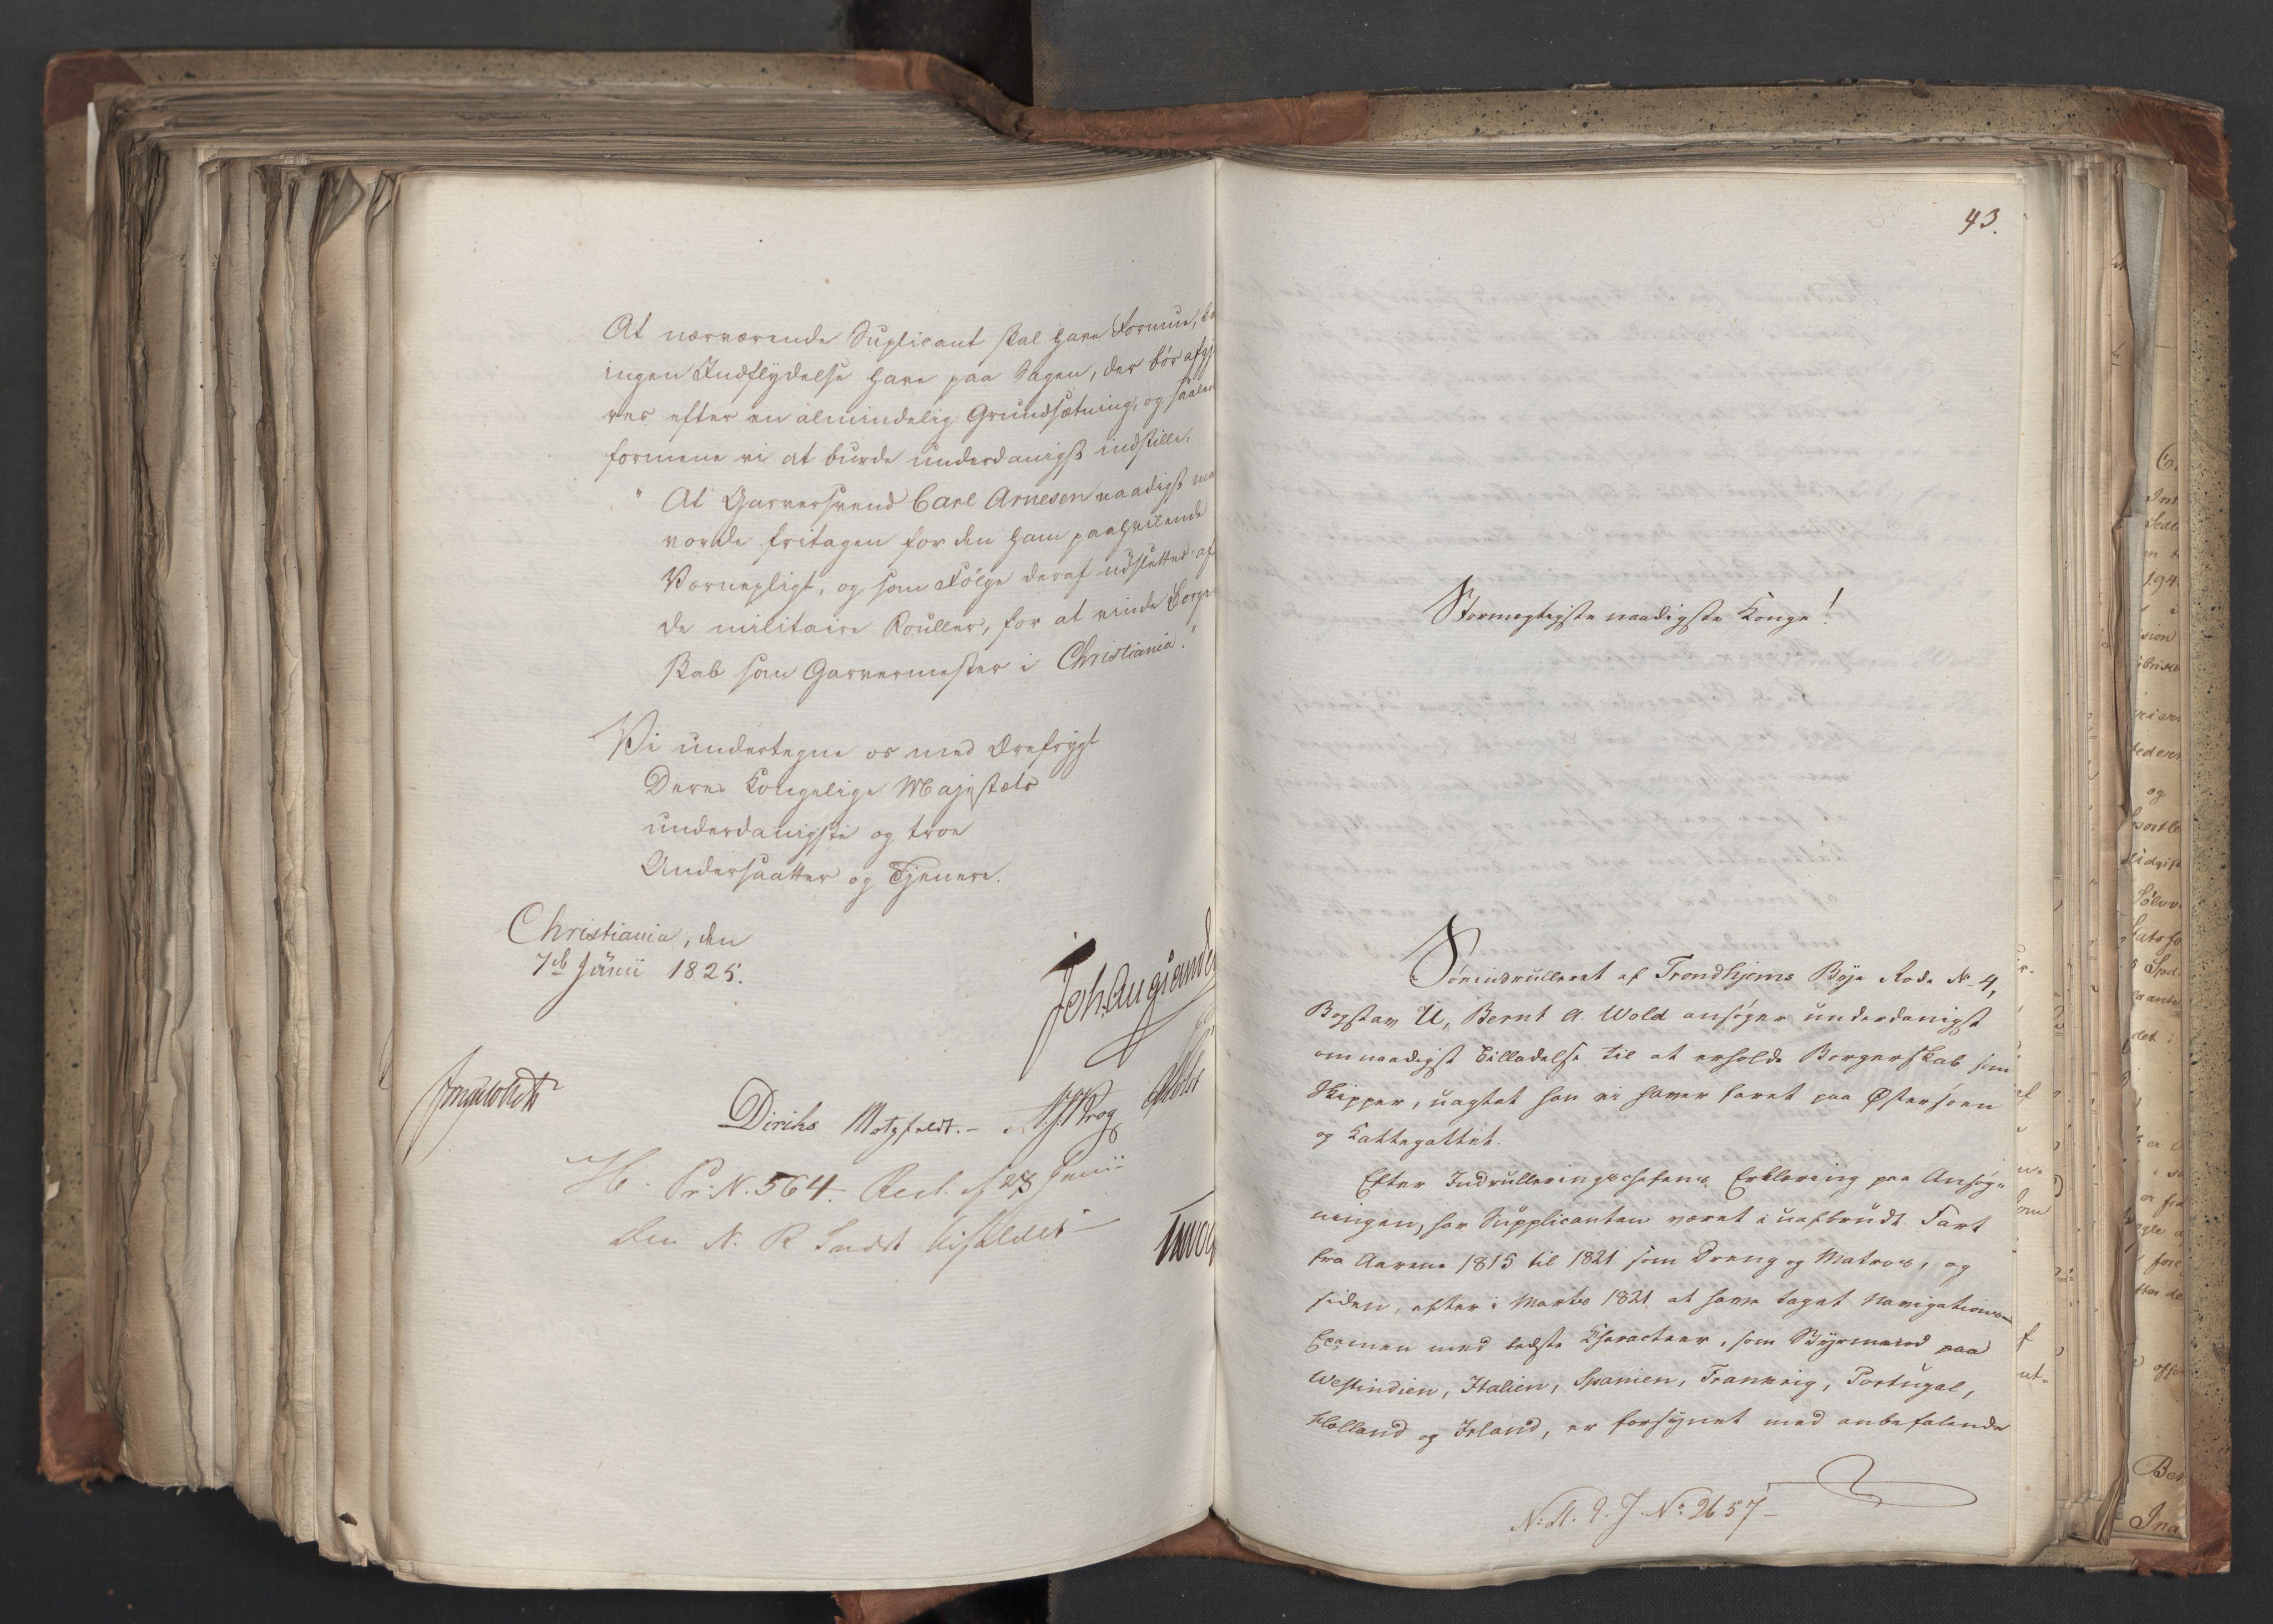 At nærværende Suplicant skal have Formue,
ingen Indflydelse have paa Sagen, der bør afgj
res efter en almindelig Grundsætning, og saaled
formene vi at burde underdanigst indstille:
" At Garversvend Carl Arnesen naadigst maa
vorde fritagen for den ham paahvilende
Værnepligt, og som Følge deraf udslettes af
de militaire Rouller, for at vinde Borger
skab som Garvermester i Christiania."
Vi undertegne os med Ærefrygt
Deres Kongelige Majestæts
underdanigste og troe
Undersaatter og Tjenere.
Christiania, den
7de Junii 1825.
Joh. Aug: Sande
Diriks Motzfeldt. - Krog Holst
H. Pr. N. 564. Resl. af 28 Junii
den N. R. Indst. bifaldet
43.
Stormægtigste naadigste Konge!
Søeindrulleret af Trondhjems Bye Rode No 4,
Bogstav U, Bernt A. Wold ansøger underdanigst
om naadigst Tilladelse til at erholde Borgerskab som
Skipper, uagtet han ei haver faret paa Østersøen
og Kattegattet.
Efter Indrulleringschefens Erklæring paa Ansøg-
ningen, har Supplicanten været i uafbrudt Fart
fra Aarene 1815 til 1821 som Dreng og Matros, og
siden, efter i Marts 1821 at have taget Navigations-
Examen med bedste Characteer, som Styrmand paa
Westindien, Italien, Spanien, Frankrig, Portugal,
Holland og Irland, er forsynet med anbefalende
N: A. 9. J. No 2657